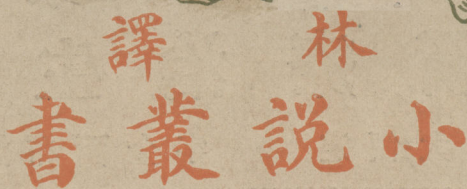 林譯
小說叢書